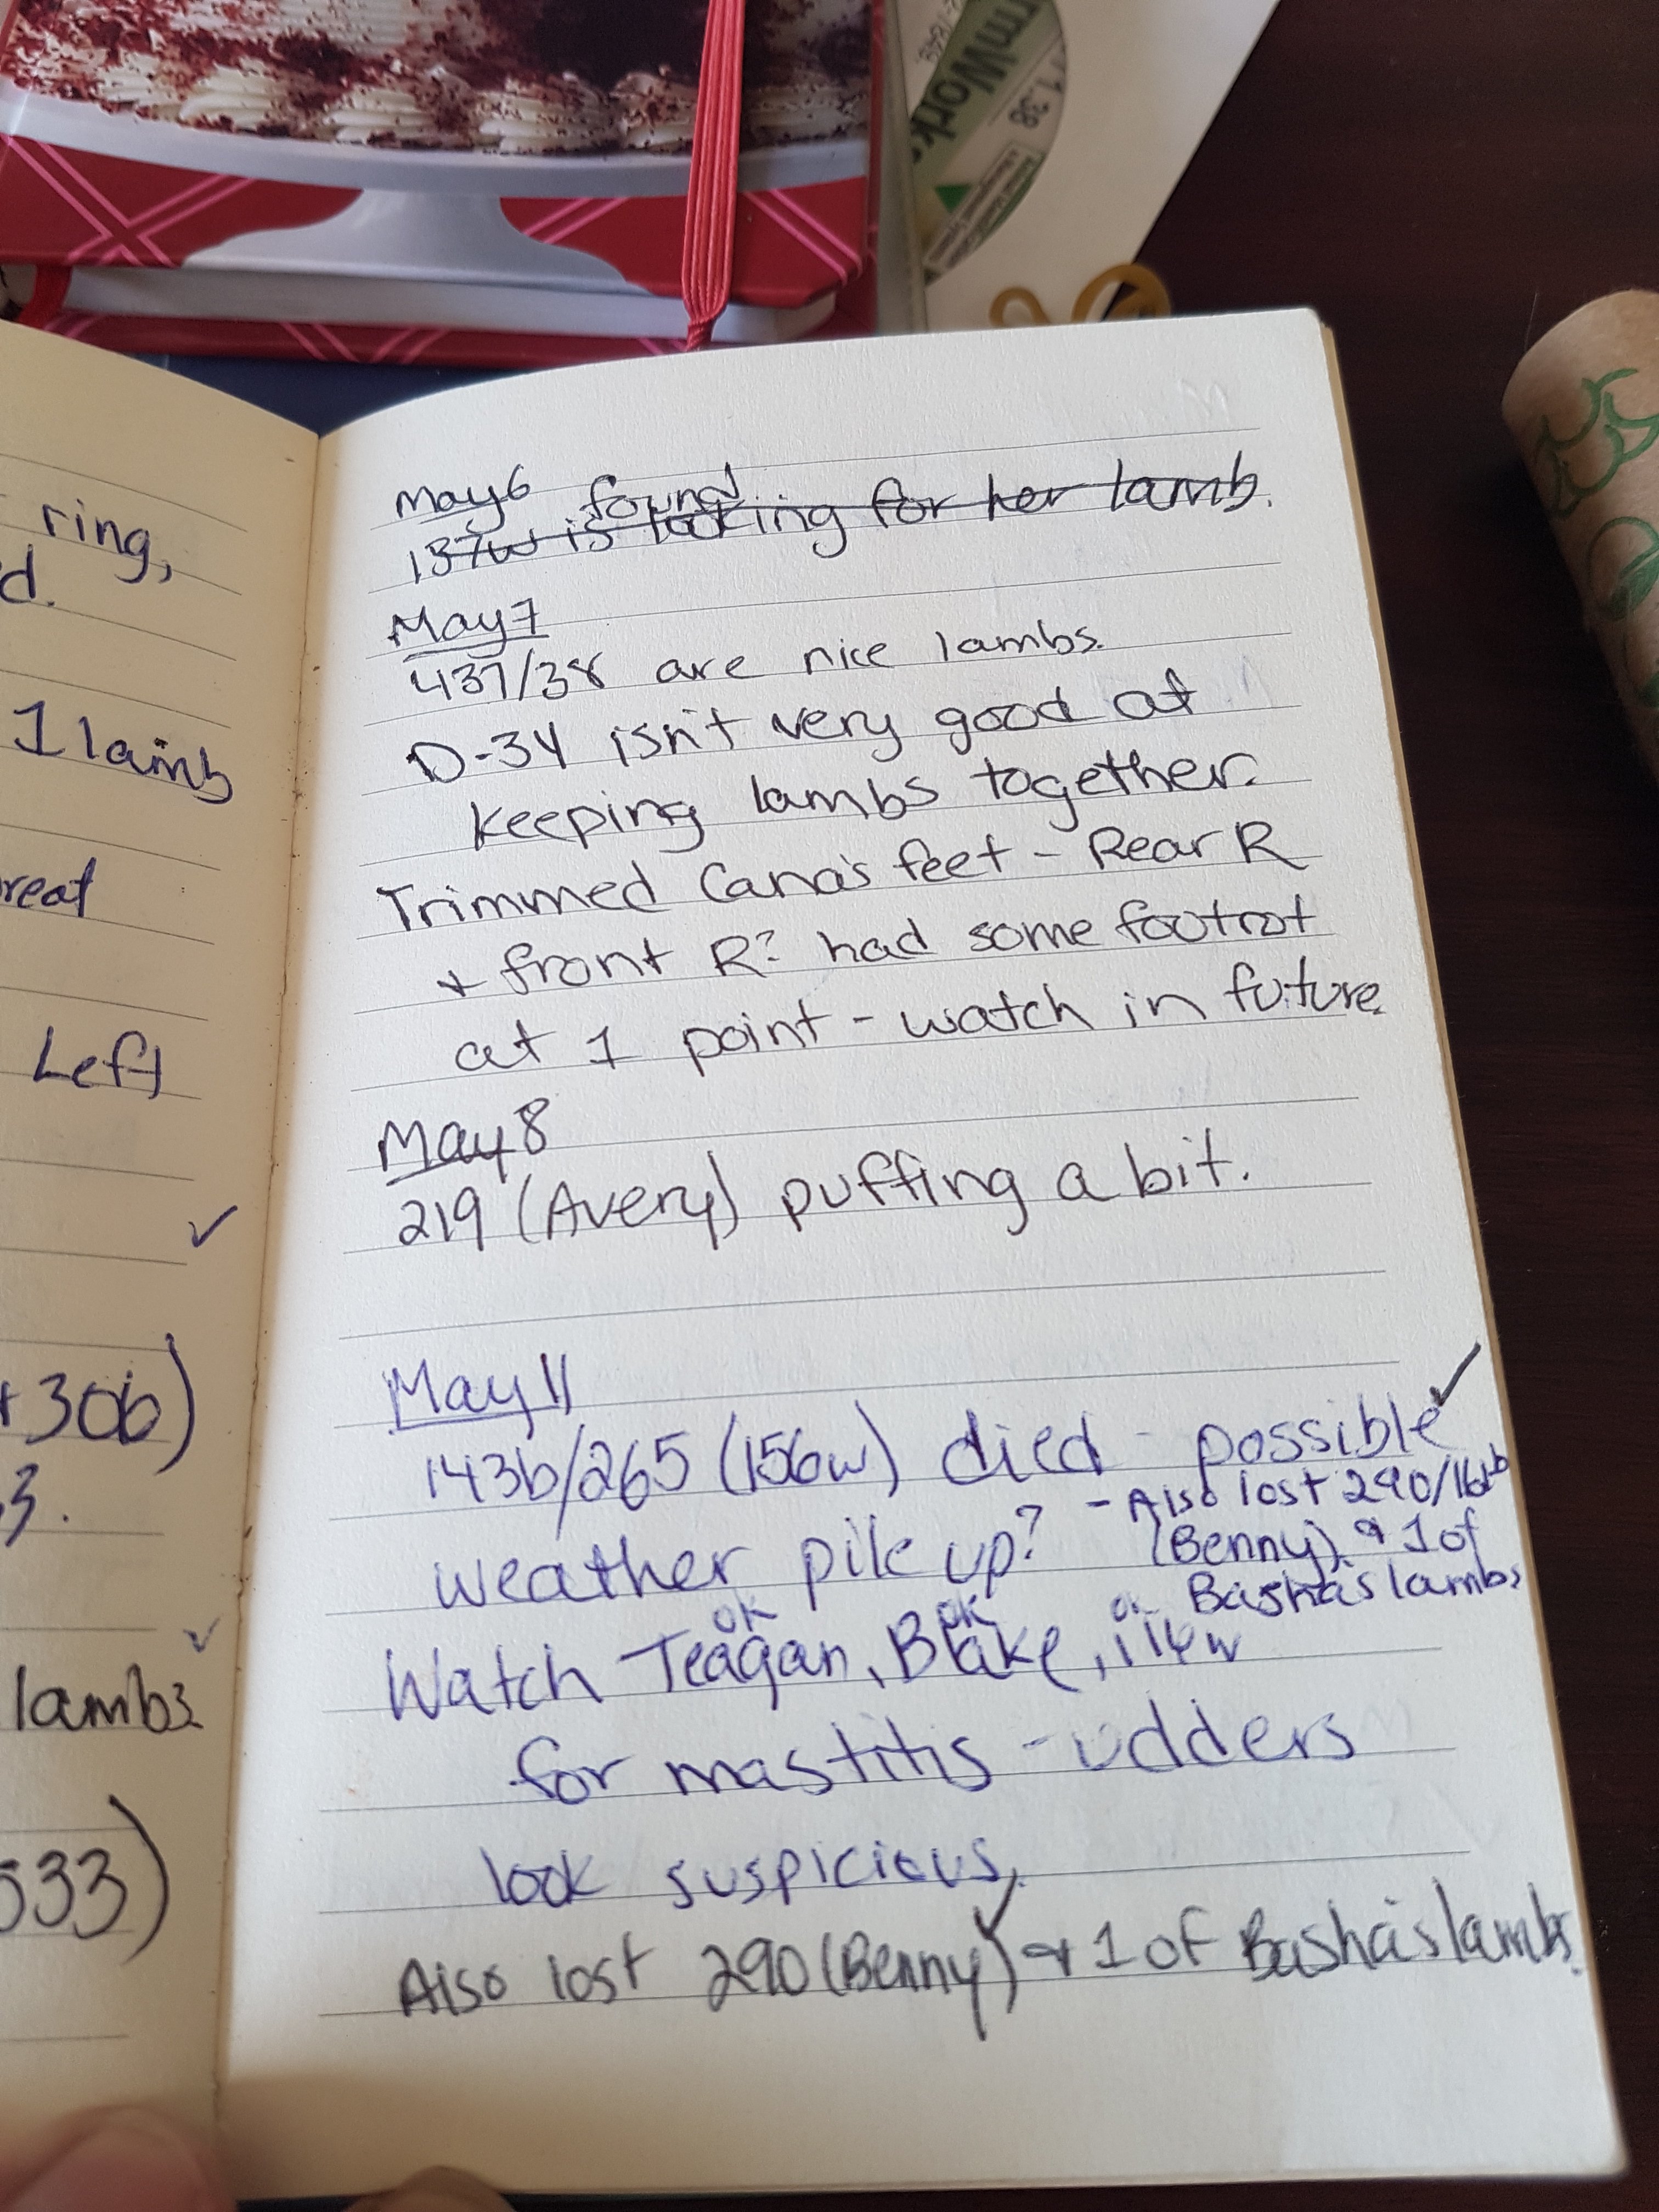 ring,
d.
1 lamb
reat
Left
✓
+ 30b)
3.
✓
lambs
533)
May 6 found
137w is looking for her lamb.
May 7
437/38 are nice lambs.
D-34 isn't very good at
keeping lambs together.
Trimmed Cana's feet - Rear R
+ front R? had some footrot
at 1 point - watch in future.
May 8
219 (Avery) puffing a bit.
May 11
143b/265 (156w) died - possible ✓
- Also lost 290/
weather pile up? (Benny) & 1 of
Basha's lambs
ok ok
Watch Teagan, Blake, 114w
for mastitis - udders
look suspicious.
Also lost 290 (Benny) ✓ + 1 of Basha's lambs.
rmWork
1.38